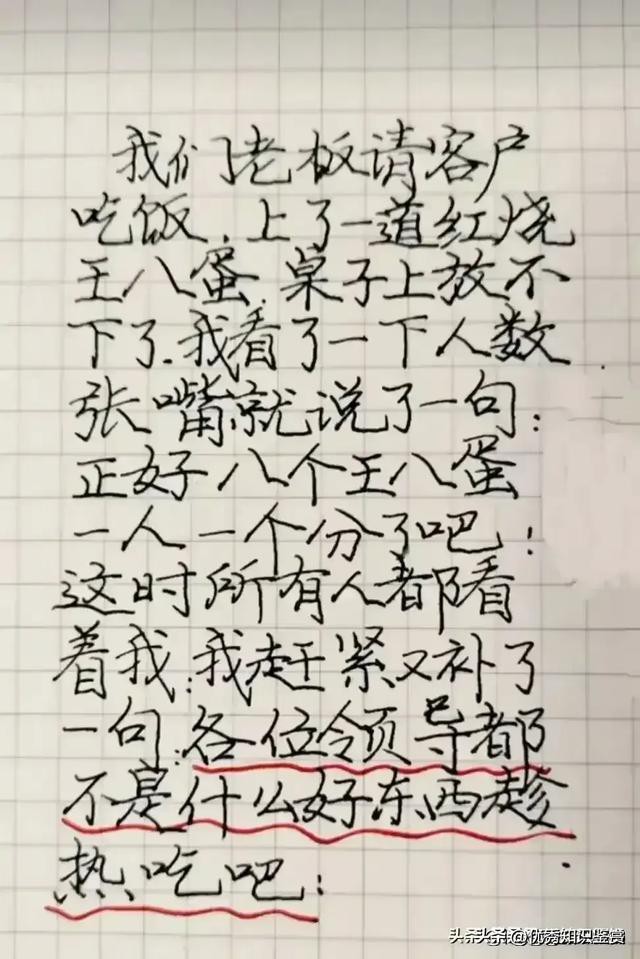 我们老板请客户
吃饭.上了一道红烧
王八蛋.桌子上放不
下了.我看了一下人数
张嘴就说了一句:
正好八个王八蛋
一人一个分了吧:
这时所有人都看
着我:我赶紧又补了
一句:各位领导都
不是什么好东西趁
热吃吧: